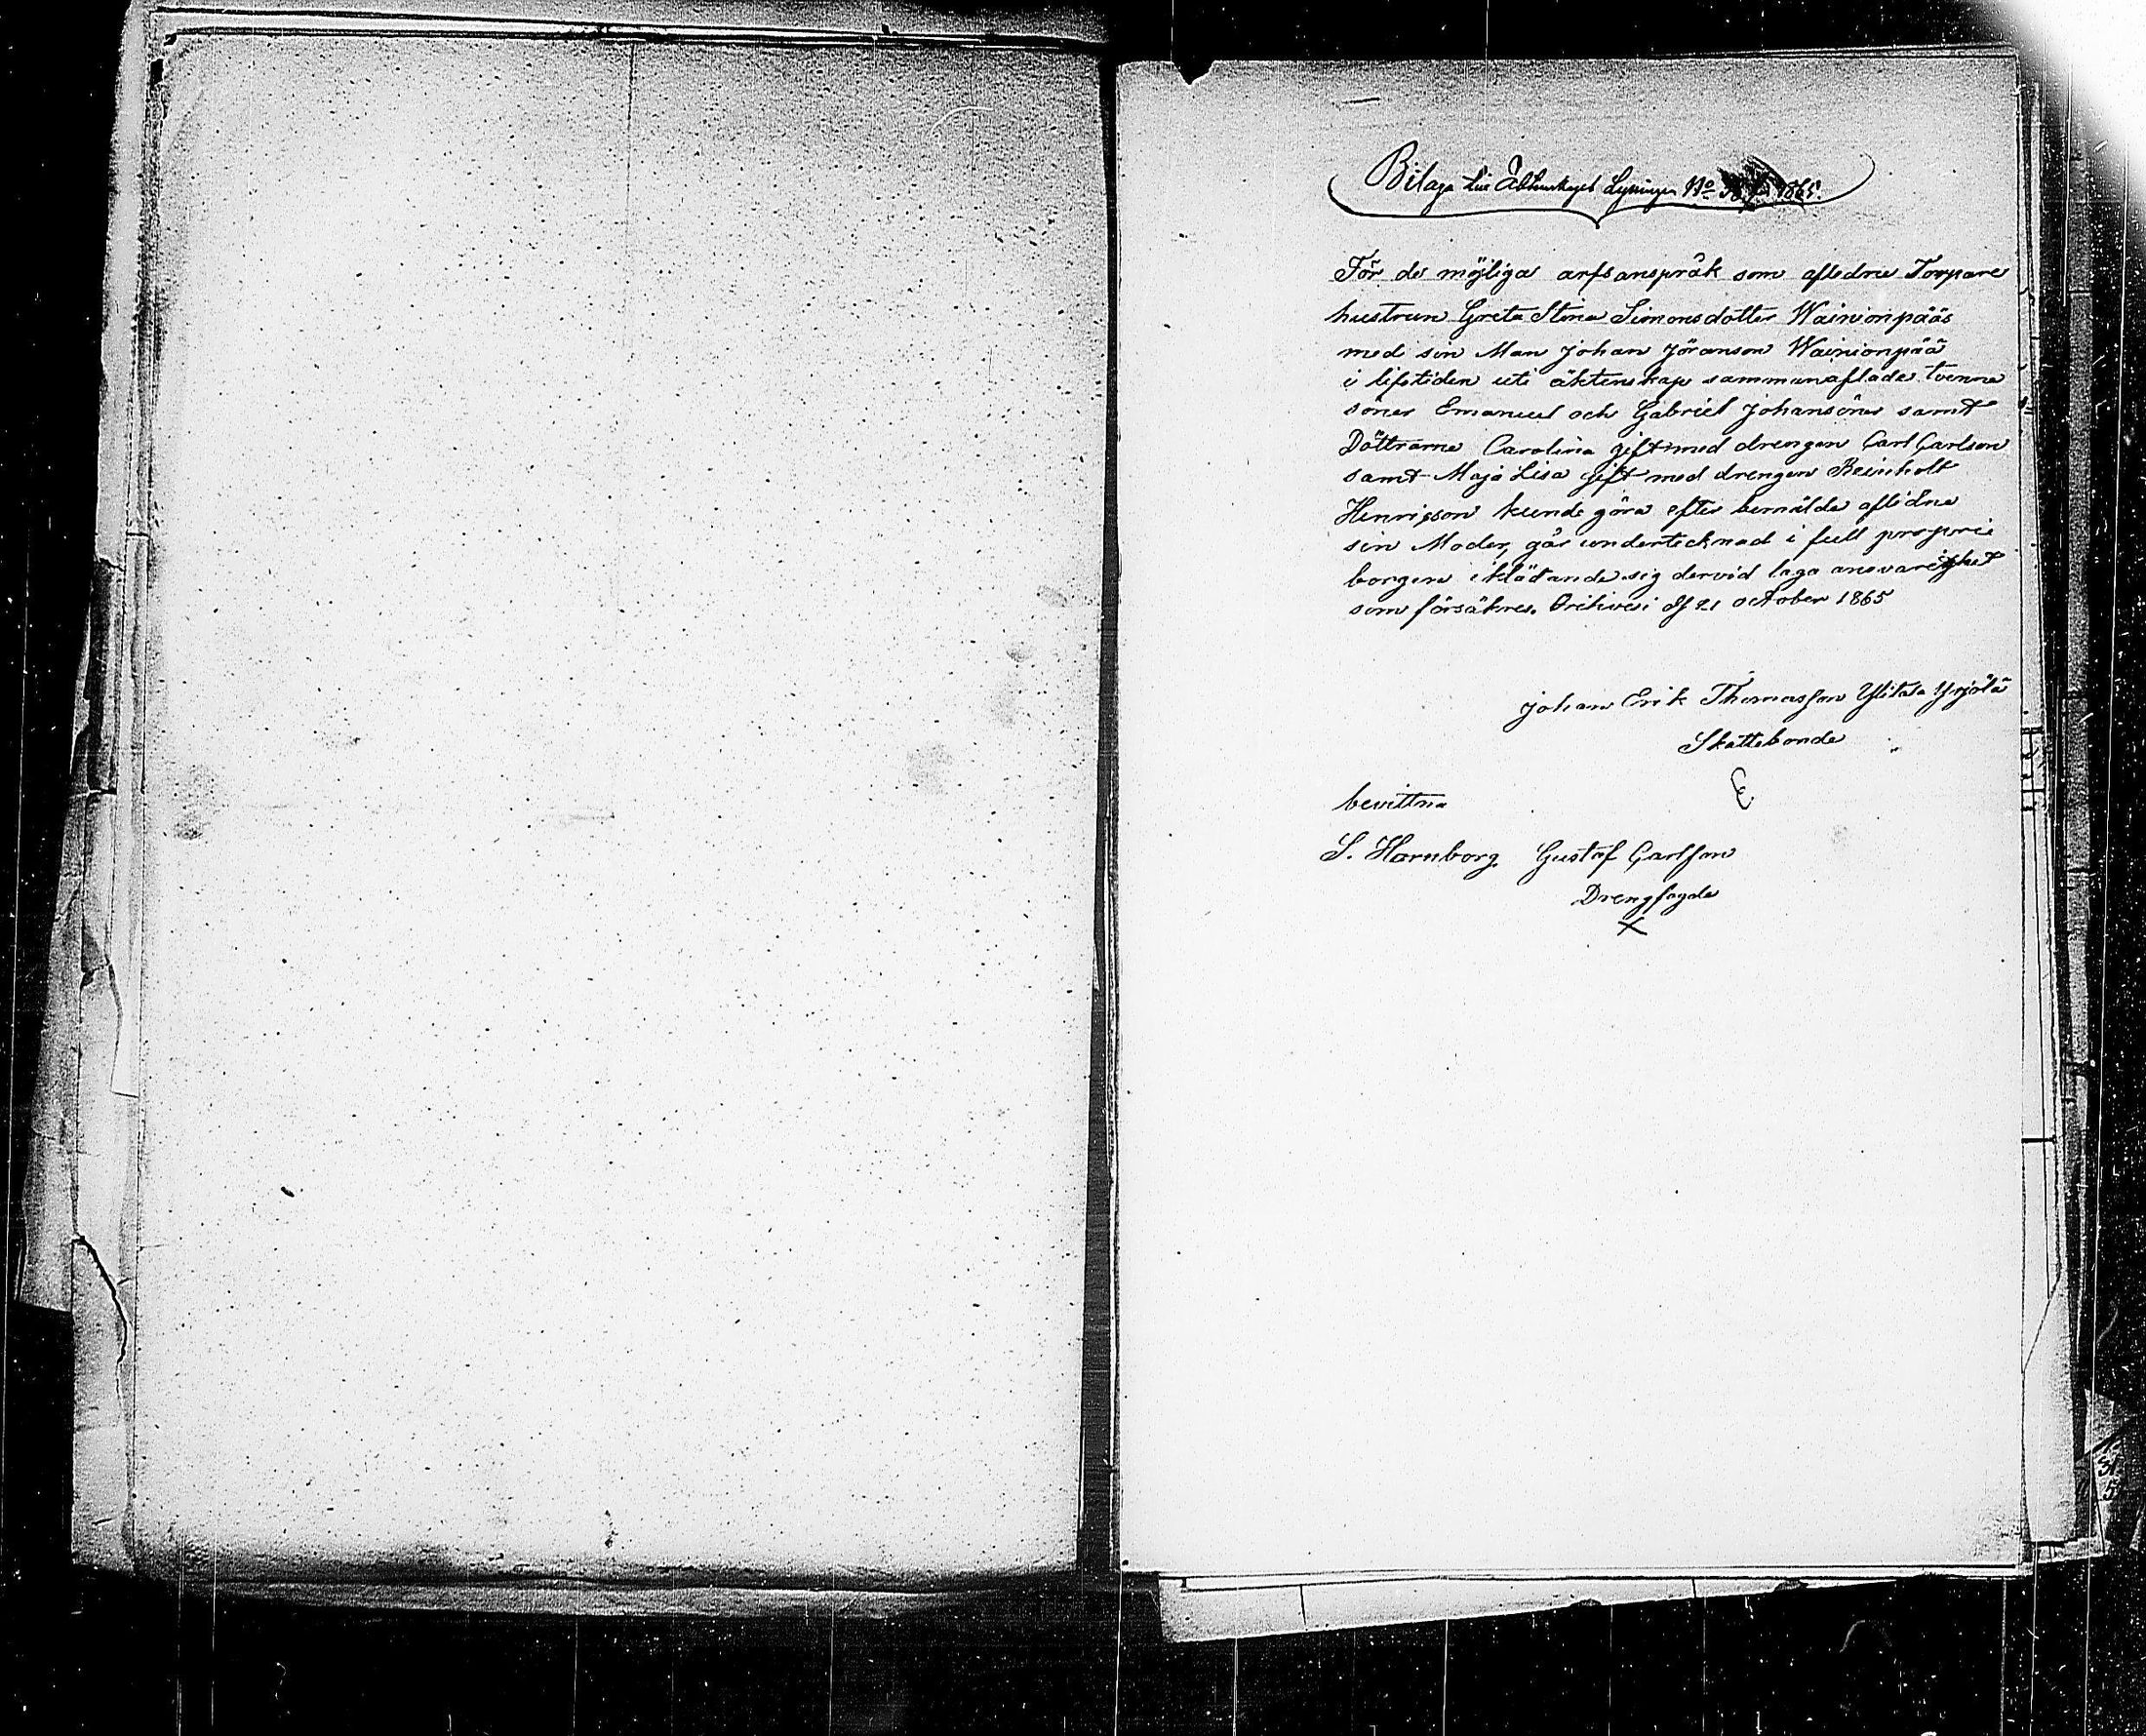 Bilaga till Äktenskaps Lysningen No 1865.
För de möjliga arfsanspråk som afledne Torpare
hustrun Greta Stina Simonsdotter Wainionpääs
med sin Man Johan Jöranson Wainionpää
i lifstiden uti äktenskap sammanaflade tvenne
söner Emanuel och Gabriel Johansöner samt
Döttrarne Carolina gift med drengen Carl Carlson
samt Maja Lisa gift med drengen Reinholt
Henricson kunde göra efter bemälde aflidne
sin Moder, går undertecknad i full proprie
borgen iklädande sig dervid laga ansvarighet
som försäkres. Orihvesi df 21 october 1865
Johan Erik Thomasson Ylitalo Yrjölä
Skattebonde
bevittna
S. Hornborg Gustaf Carlson
Drengfogde
X